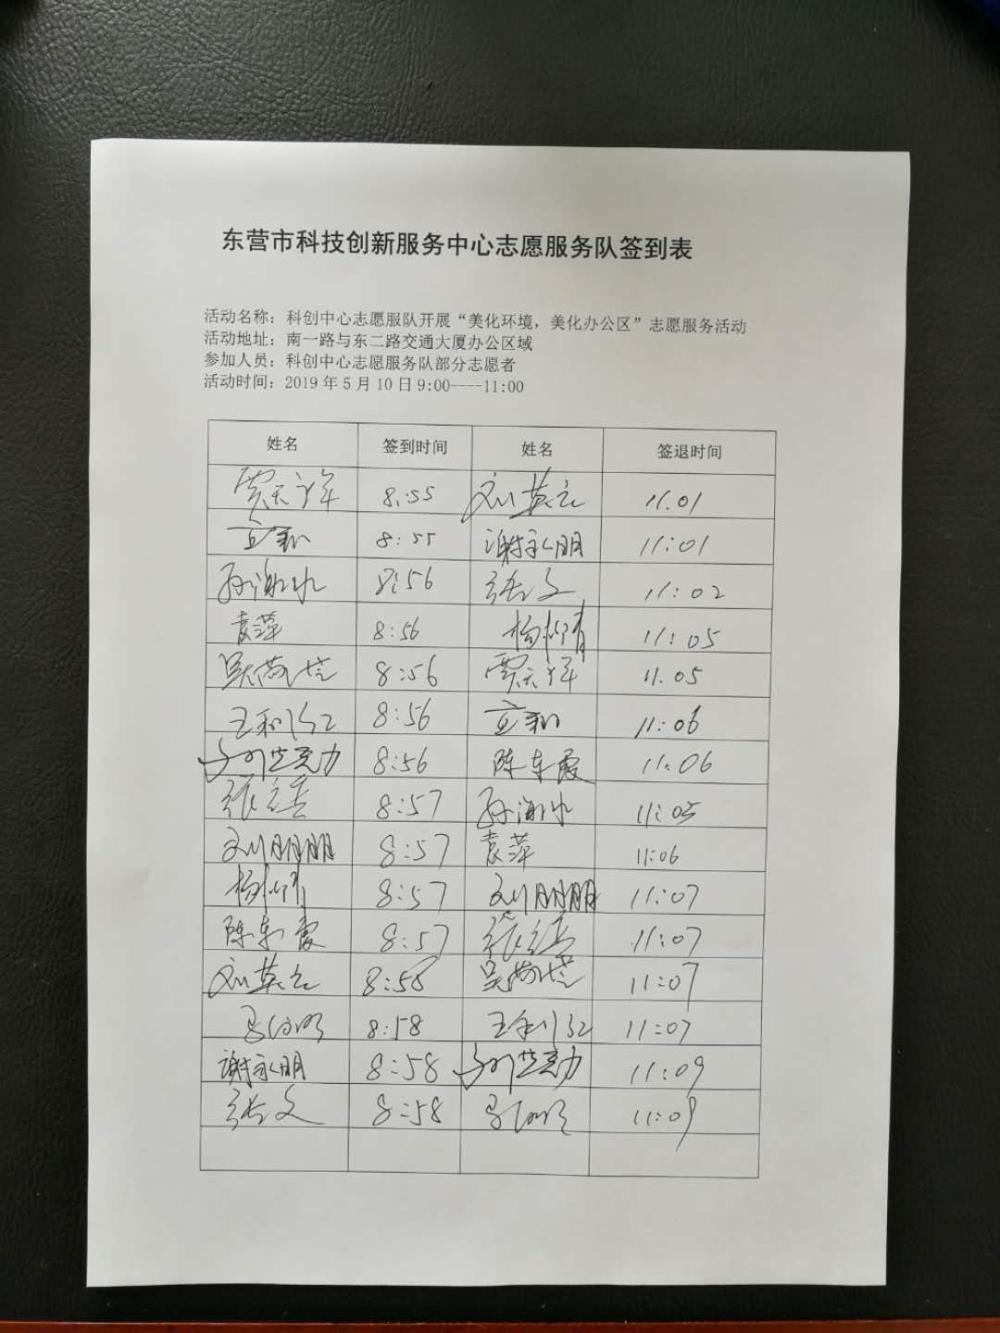 东营市科技创新服务中心志愿服务队签到表
活动名称：科创中心志愿服队开展“美化环境，美化办公区”志愿服务活动
活动地址：南一路与东二路交通大厦办公区域
参加人员：科创中心志愿服务队部分志愿者
活动时间：2019年5月10日9:00----11:00
姓名 签到时间 姓名 签退时间
贾天祥 8:55 刘英云 11.01
8:55 谢永朋 11:01
8:56 张文 11:02
袁萍 8:56 11:05
8:56 贾天祥 11.05
8:56 11:06
8:56 陈东霞 11:06
8:57 11:05
刘朋朋 8:57 袁萍 11:06
8:57 刘朋朋 11:07
陈东霞 8:57 11:07
刘英云 8:58 11:07
8:58 11:07
谢永朋 8:58 11:09
张文 8:58 11:09